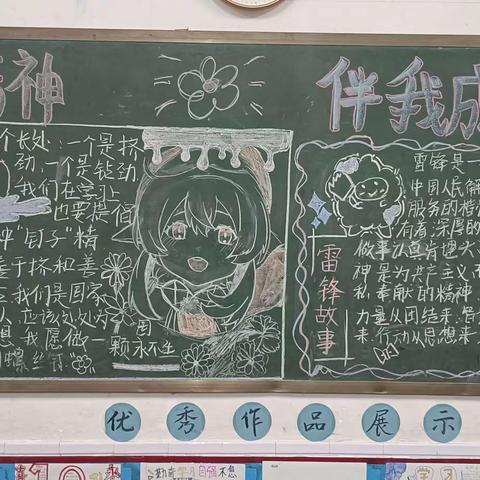 神
伴我成
个长处:一个是挤
劲,一个是钻劲
我们在学业
也要提倡
"钉子"精
善于挤和善
我们是国家
人,应该处处为
国
想,我愿做一
颗永不生
螺丝钉"
雷锋是一
中国人民解
服务的楷
有着深厚的
做事认真肯
神是为共产主义而
私奉献的精神,
力量从团结来,
来,行动从思想来
雷锋故事
优秀作品展示